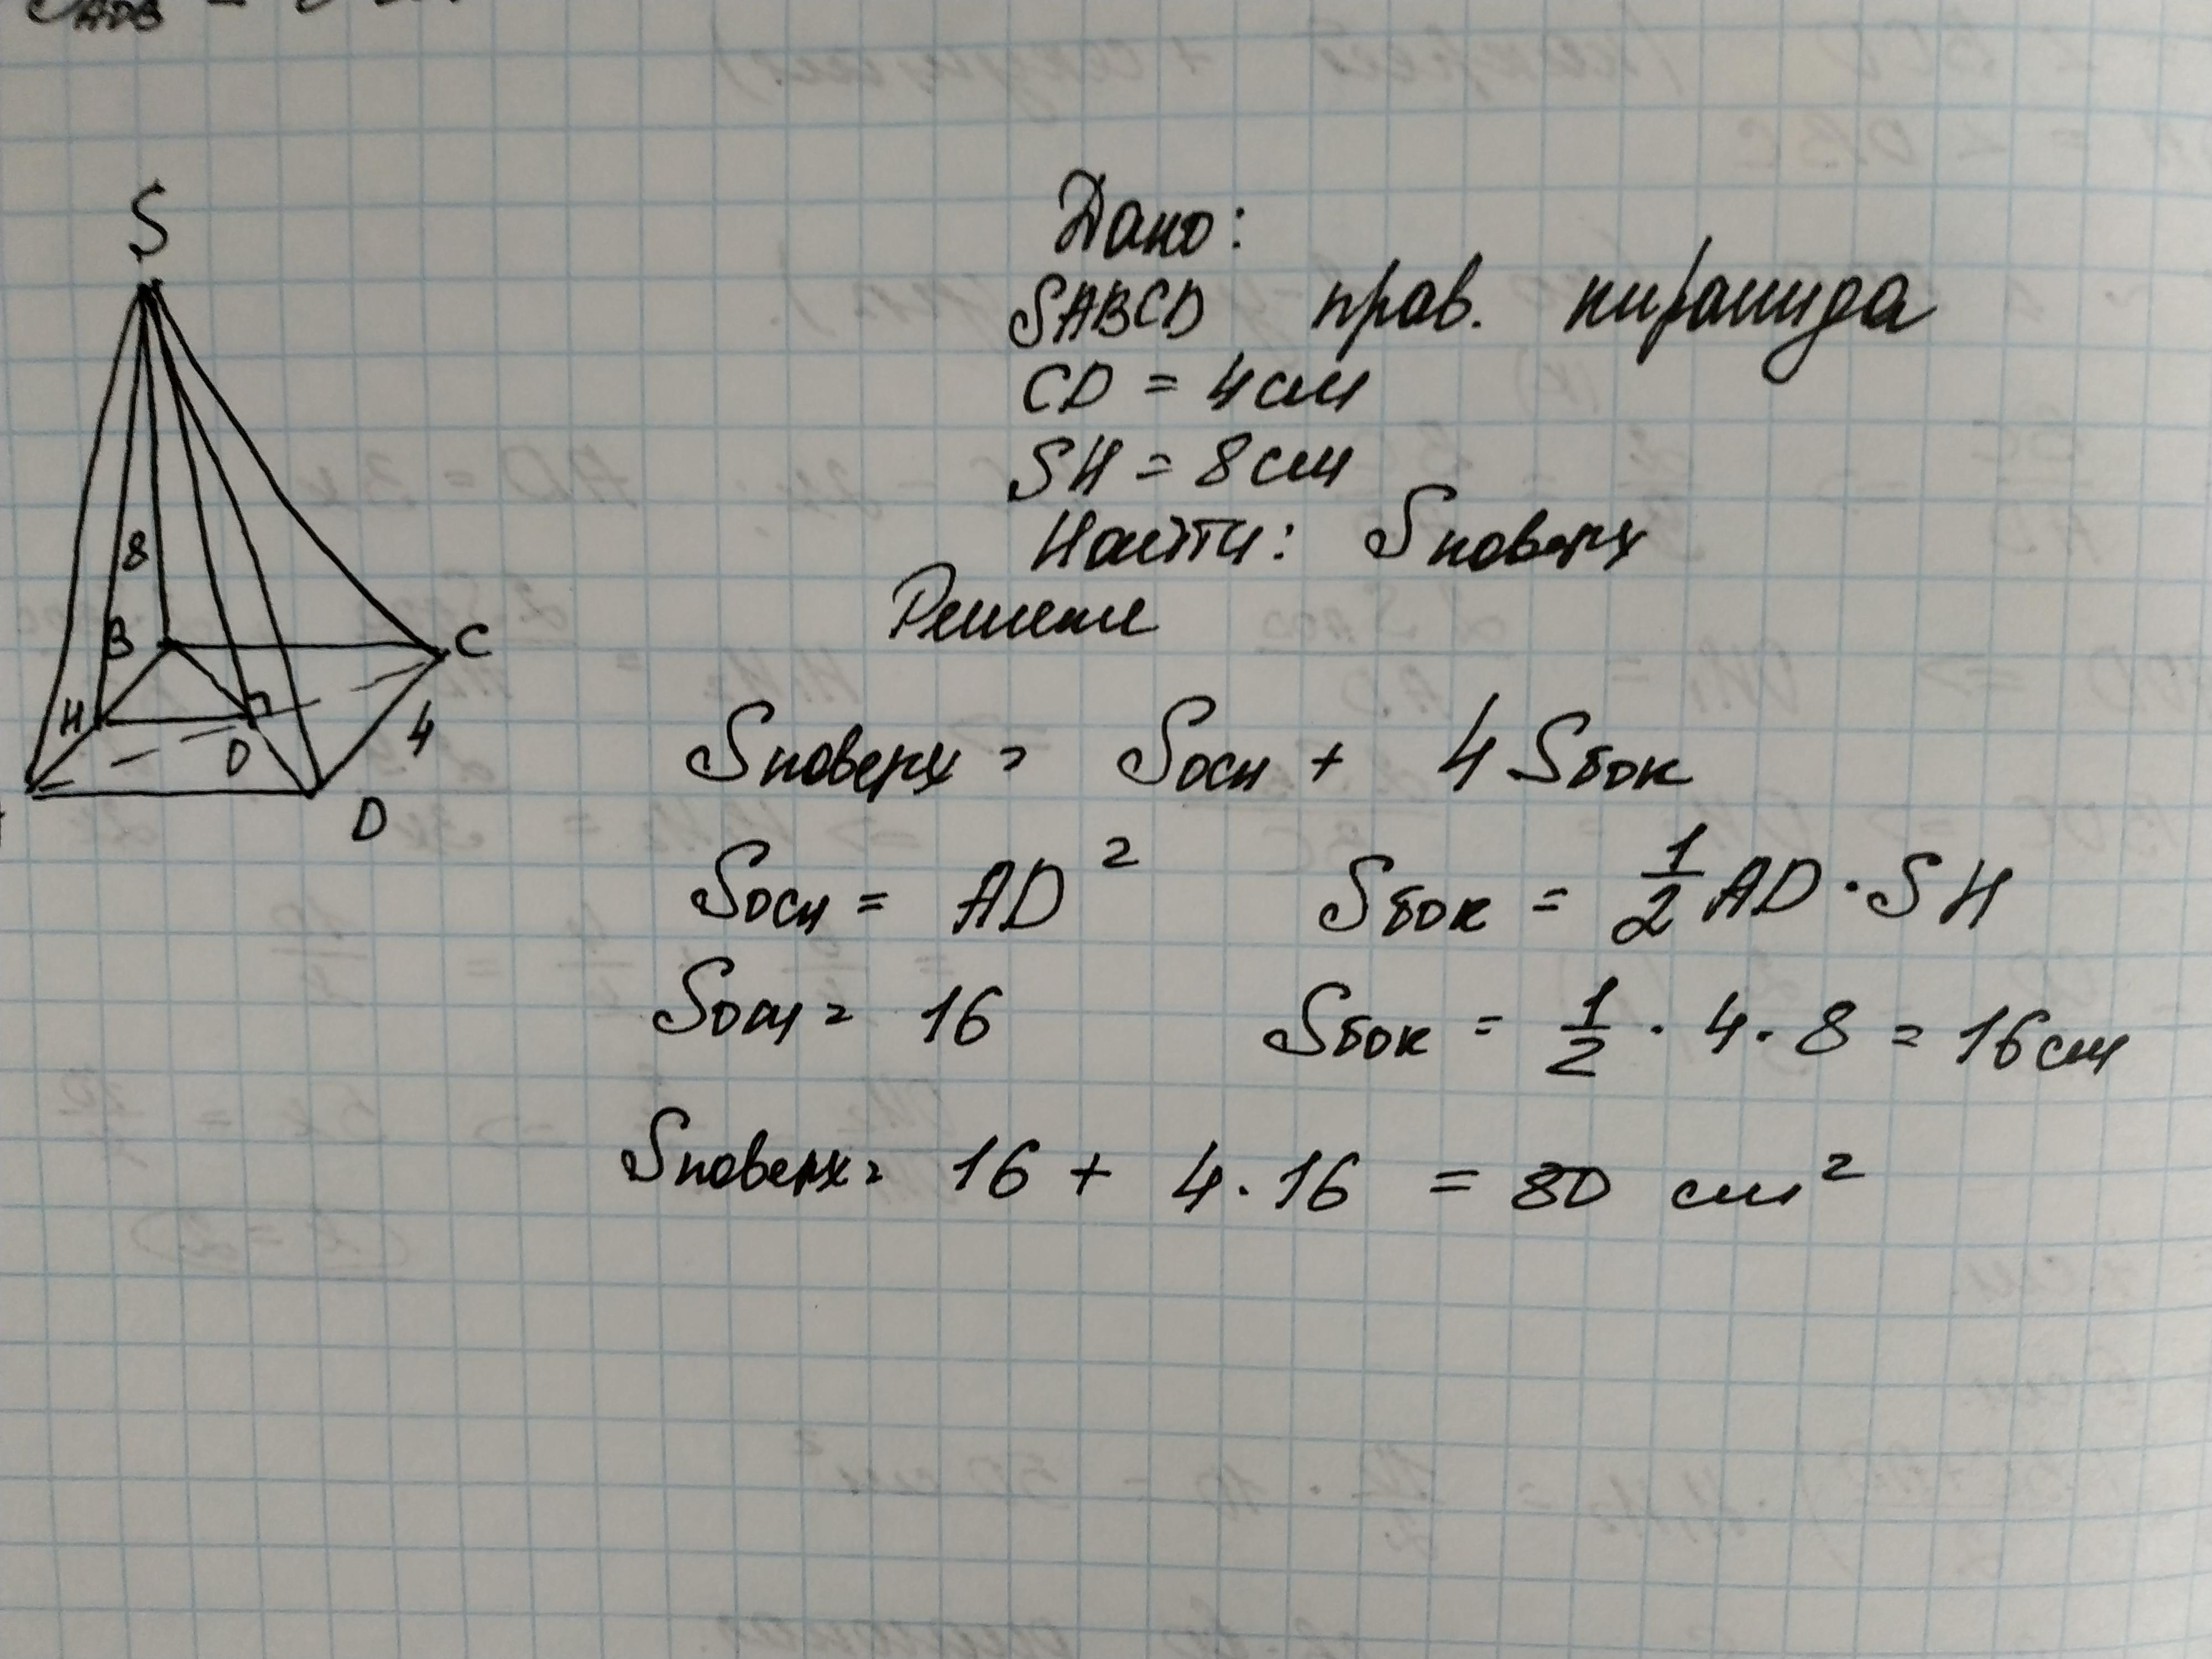 S
8
B
C
H
O
4
D
Дано:
SABCD прав. пирамида
CD = 4см
SH = 8см
Найти: Sповерх
Решение
Sповерх = Sосн + 4 Sбок
Sосн = AD² Sбок = 1/2 AD · SH
Sосн = 16 Sбок = 1/2 · 4 · 8 = 16см
Sповерх = 16 + 4 · 16 = 80 см²